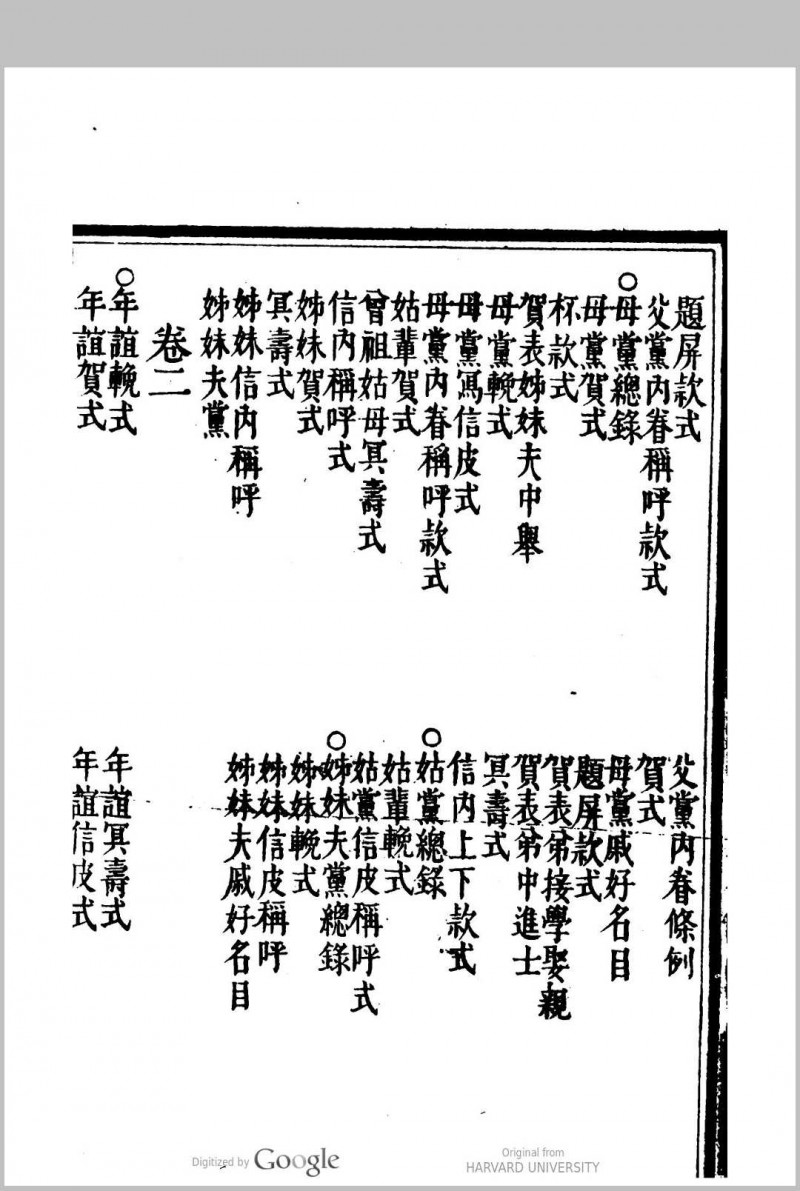 題屏款式　父黨內眷條例
父黨內眷稱呼款式　賀式
○母黨總錄　母黨戚好名目
母黨賀式　題屏款式
杯款式　賀表弟接學娶親
賀表姊妹夫中舉　賀表弟中進士
母黨輓式　冥壽式
母黨寫信皮式　信內上下款式
母黨內眷稱呼款式　○姑黨總錄
姑輩賀式　姑輩輓式
曾祖姑母冥壽式　姑黨信皮稱呼式
信內稱呼式　○姊妹夫黨總錄
姊妹賀式　姊妹輓式
冥壽式　姊妹信皮稱呼
姊妹信內稱呼　姊妹夫戚好名目
姊妹夫黨
卷二
○年誼輓式　年誼冥壽式
年誼賀式　年誼信皮式
Digitized by Google
Original from
HARVARD UNIVERSITY